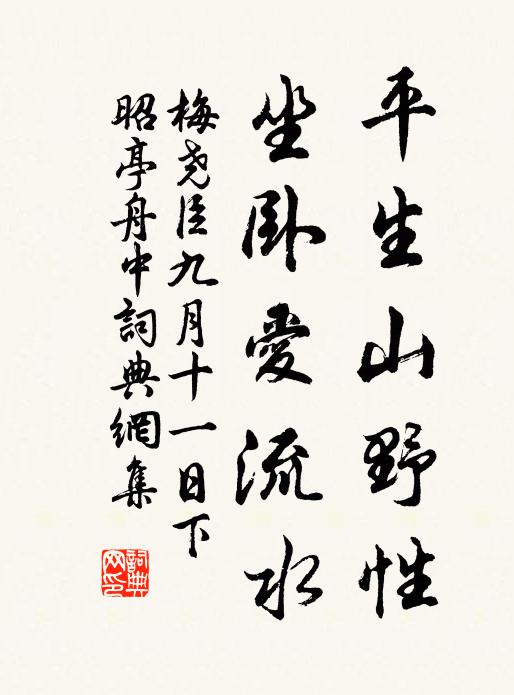 平生山野性
坐卧愛流水
梅尧臣九月十一日下
昭亭舟中詞典網集
詞典
网印